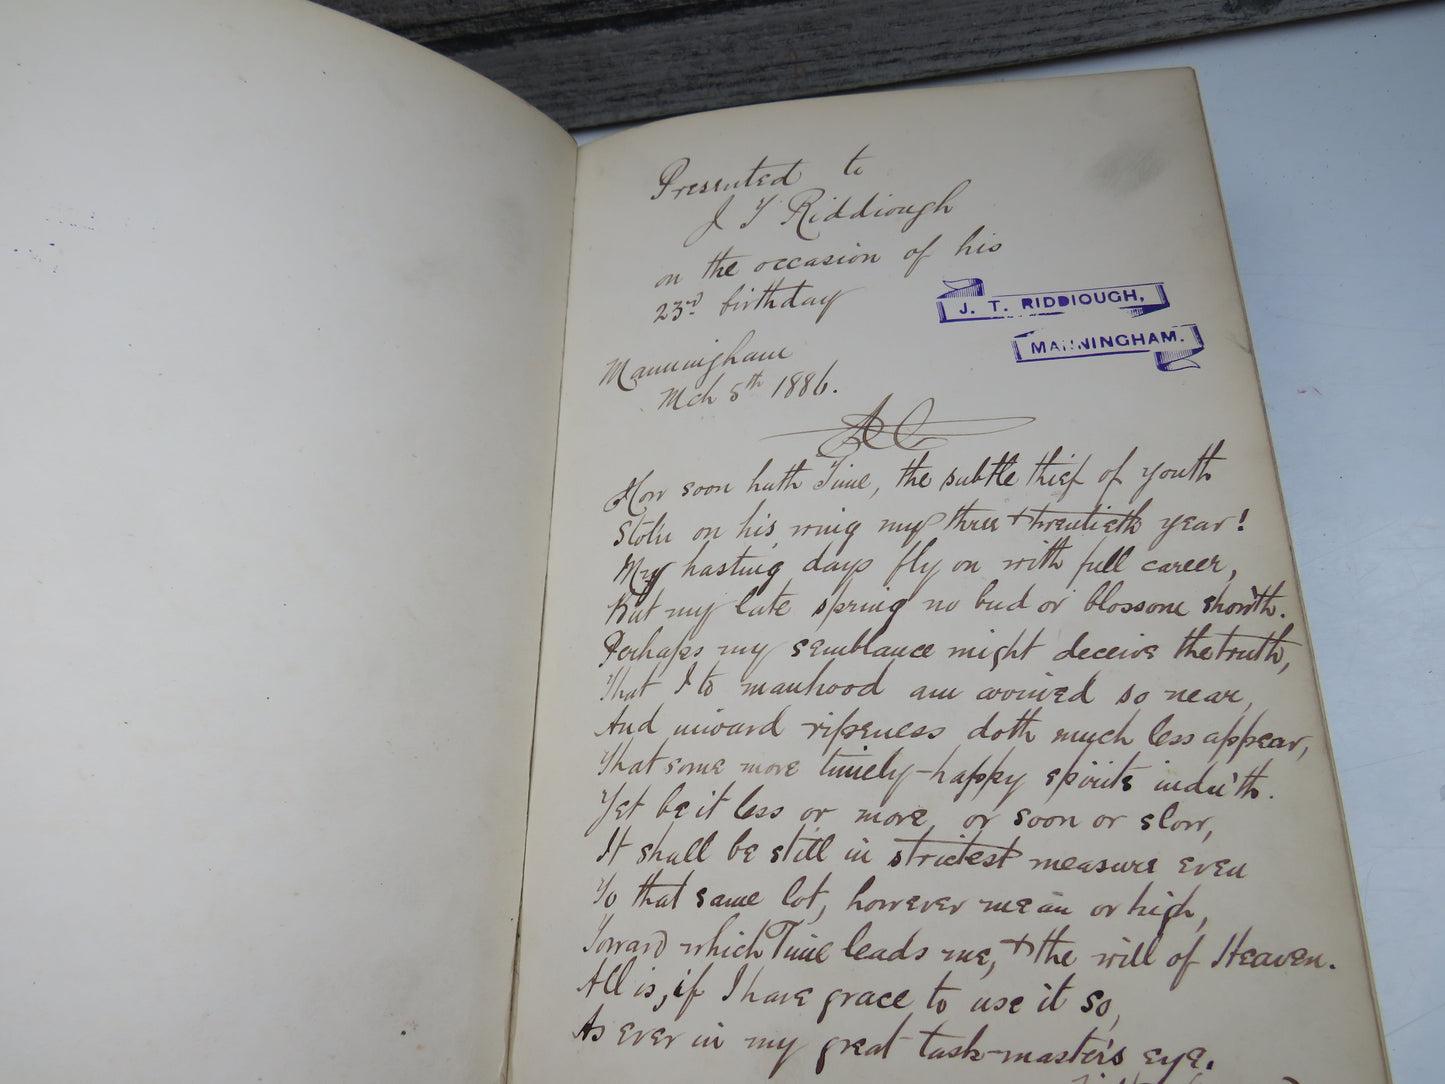 Presented to
J T Riddiough
on the occasion of his
23rd birthday
J. T. RIDDIOUGH,
MANNINGHAM.
Manningham
Mch 5th 1886.
How soon hath Time, the subtle thief of youth
Stolen on his wing my three + twentieth year!
My hasting days fly on with full career,
But my late spring no bud or blossom show'th.
Perhaps my semblance might deceive the truth,
That I to manhood am arrived so near,
And inward ripeness doth much less appear,
That some more timely-happy spirits indu'th.
Yet be it less or more, or soon or slow,
It shall be still in strictest measure even
To that same lot, however mean or high,
Toward which Time leads me, + the will of Heaven.
All is, if I have grace to use it so,
As ever in my great task-master's eye.